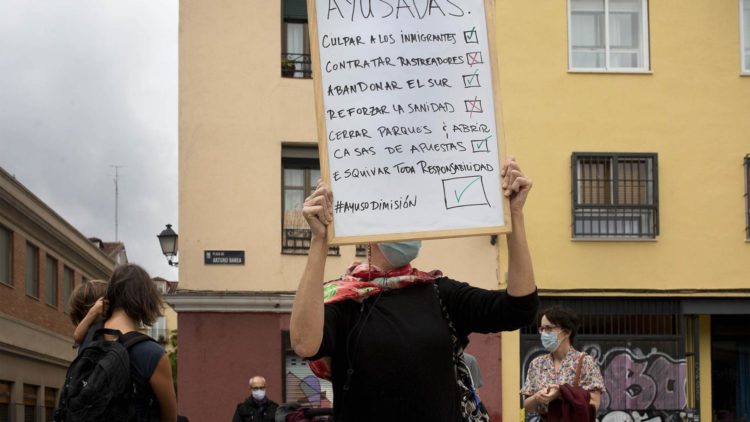 AYUSADAS.
CULPAR A LOS INMIGRANTES
CONTRATAR RASTREADORES
ABANDONAR EL SUR
REFORZAR LA SANIDAD
CERRAR PARQUES & ABRIR
CASAS DE APUESTAS
ESQUIVAR TODA RESPONSABILIDAD
#AYUSODIMISIÓN
PLAZA DE
ARTURO BAREA